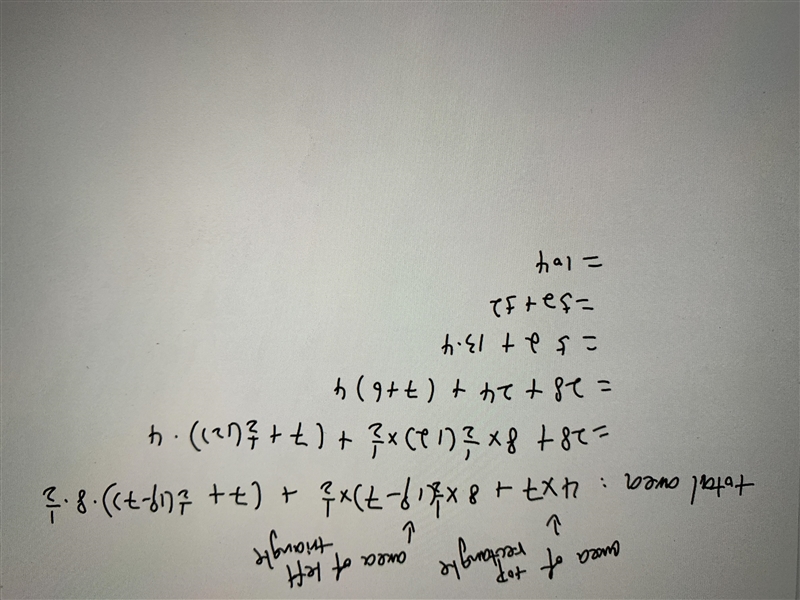 area of top rectangle
area of left triangle
total area : 4×7 + 8×½(19-7)×½ + (7+ ½(19-7))·8·½
=28+ 8×½(12)×½ + (7+½(12))·4
= 28 + 24 + (7+6)4
= 52 + 13·4
=52+52
= 104